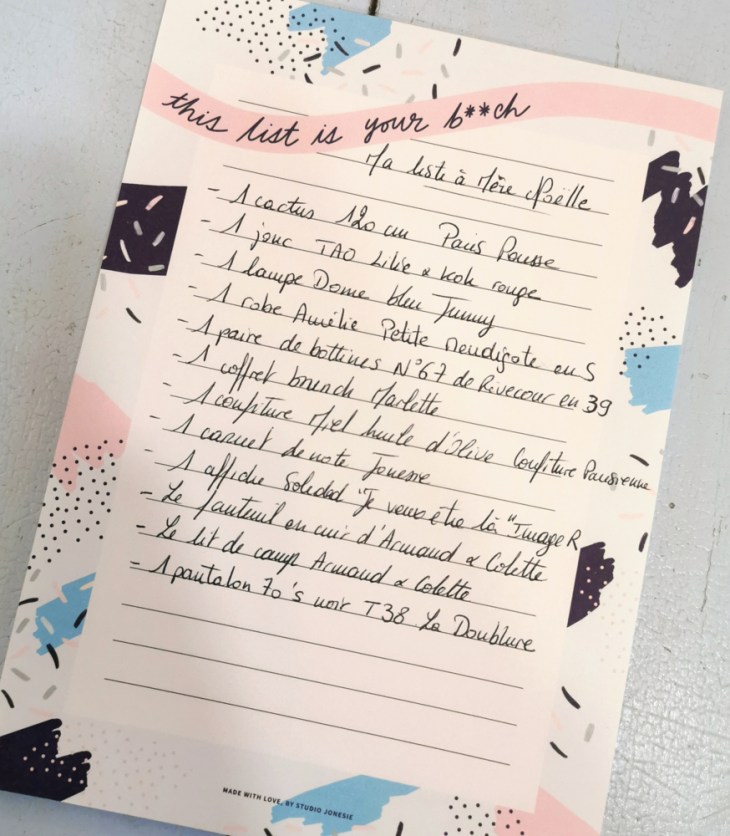 this list is your b**ch
Ma liste à Mère Noëlle
- 1 cactus 120 cm Pauis Pousse
- 1 jonc TAO Lilie & Koh rouge
- 1 lampe Dome bleu Jimmy
- 1 robe Amélie Petite Mendigote en S
- 1 paire de bottines N°67 de Rivecour en 39
- 1 coffret brunch Marlette
- 1 confiture Miel huile d'Olive Confiture Parisienne
- 1 carnet de note Jonesie
- 1 affiche Soledad "Je veux être là" Image R
- Le fauteuil en cuir d'Armand & Colette
- Le lit de camp Armand & Colette
- 1 pantalon 70's noir T38 La Doublure
MADE WITH LOVE, BY STUDIO JONESIE